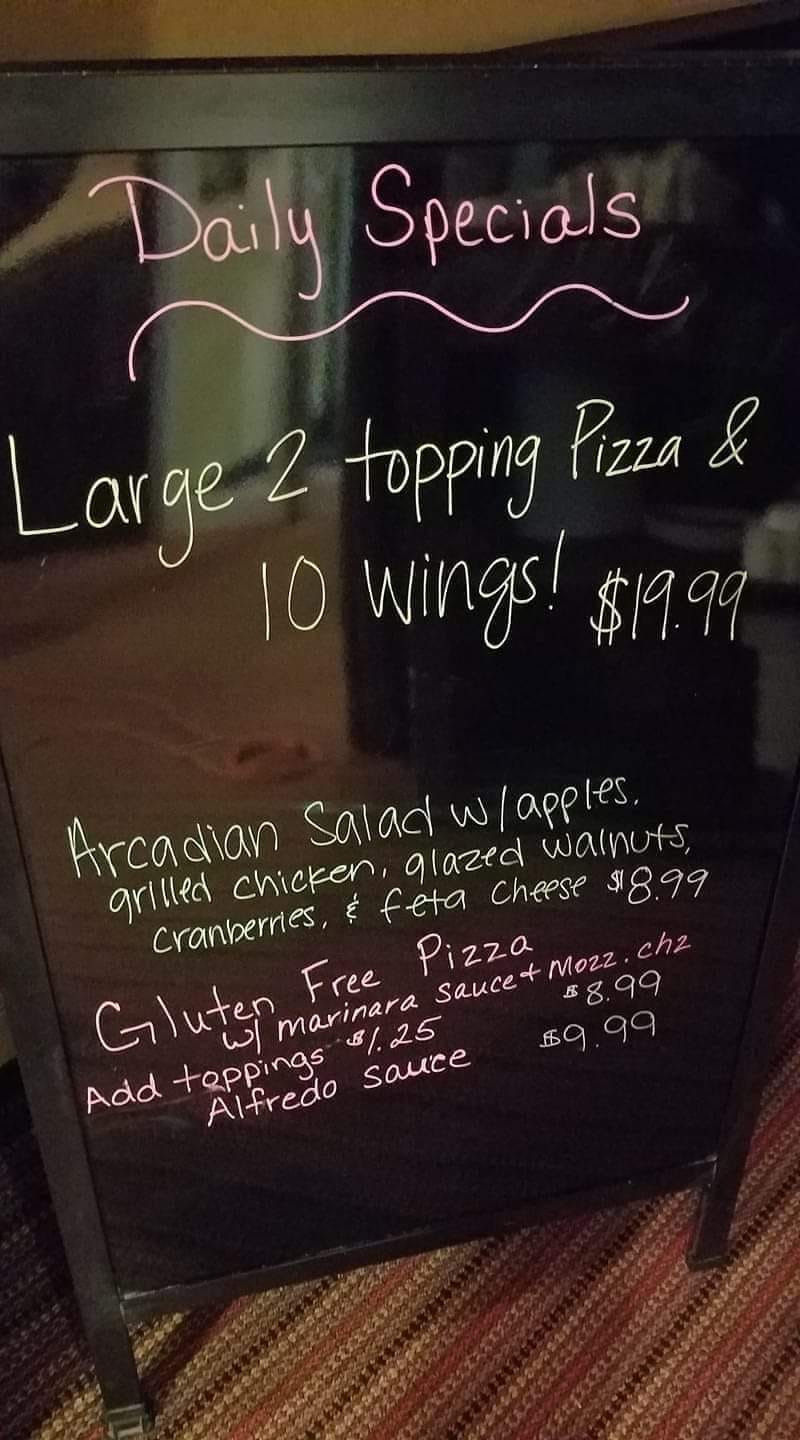 Daily Specials
Large 2 topping Pizza &
10 wings! $19.99
Arcadian Salad w/apples,
grilled chicken, glazed walnuts,
cranberries, & feta cheese $8.99
Gluten Free Pizza
w/ marinara sauce + Mozz. chz
$8.99
Add toppings $1.25
Alfredo sauce $9.99